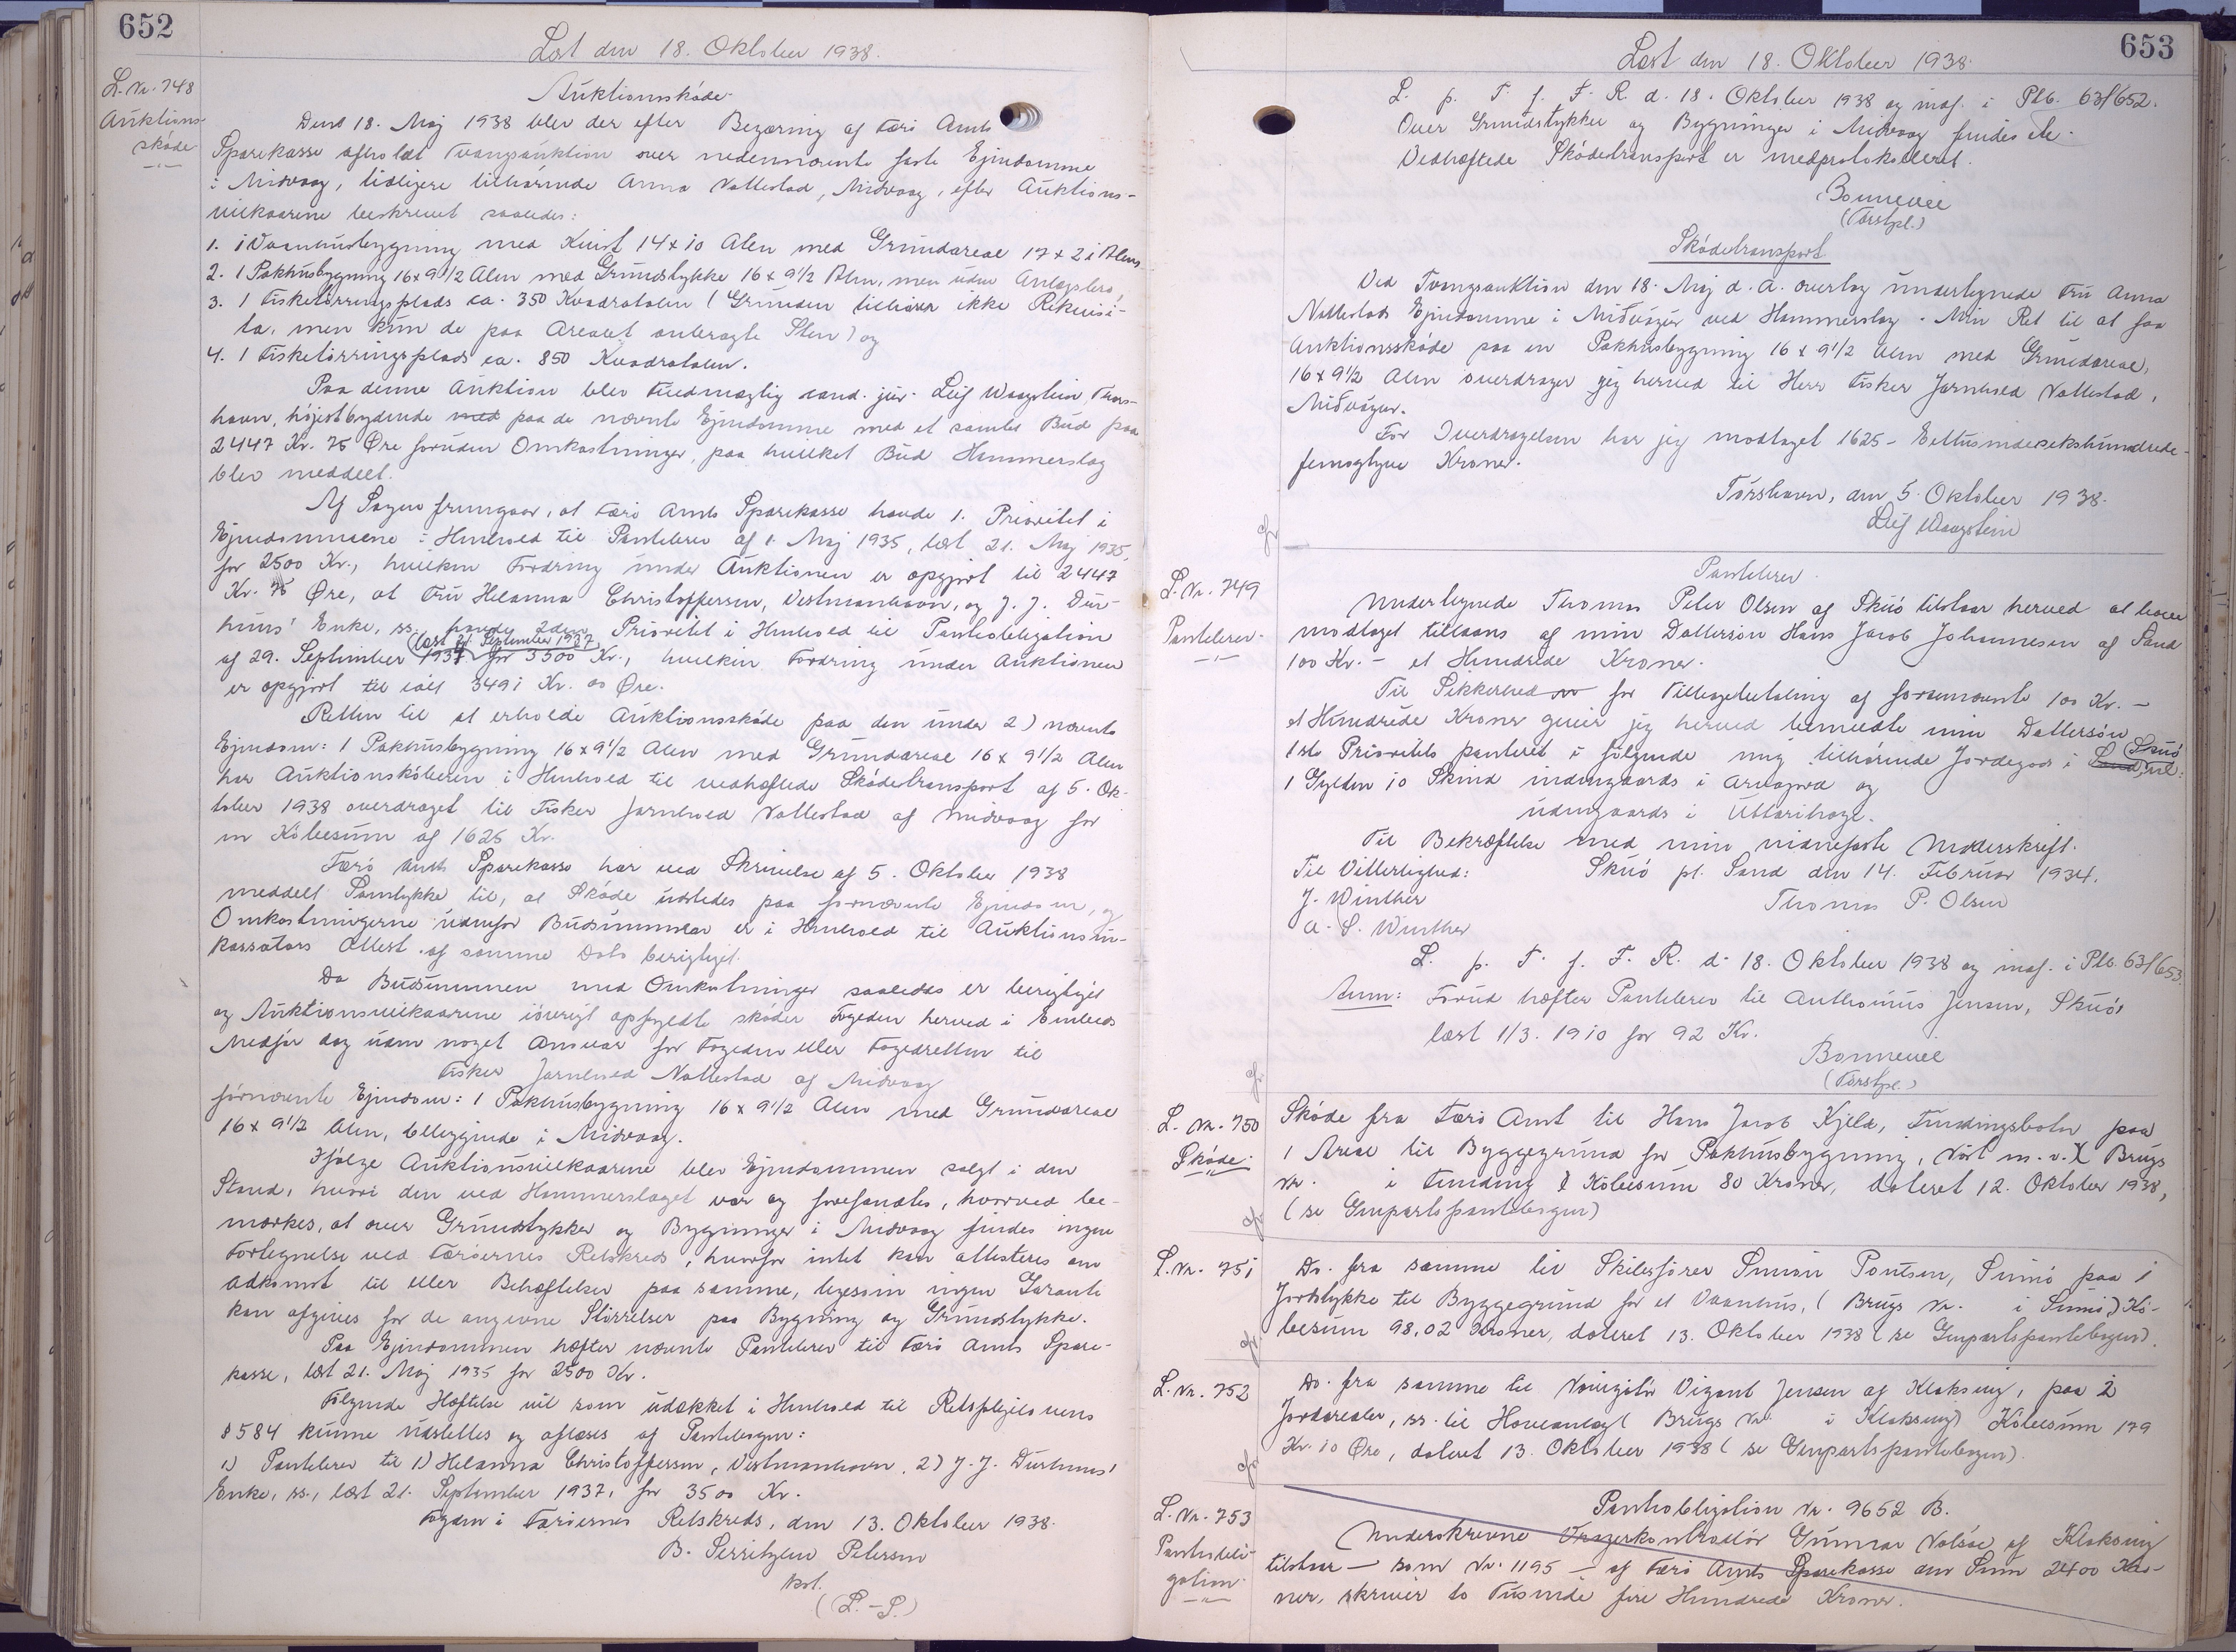 652
Læst den 18. Oktober 1938.
L. Nr. 748
Auktions-
skøde
Auktionsskøde.
Den 18. Maj 1938 blev der efter Begæring af Færø Amts
Sparekasse afholdt Tvangsauktion over nedennævnte faste Ejendomme
i Midvaag, tidligere tilhørende Anna Nattestad, Midvaag, efter Auktions-
vilkaarene beskrevet saaledes:
1. 1 Vaanhusbygning med Kvist 14 x 10 Alen med Grundareal 17 x 21 Alen,
2. 1 Pakhusbygning 16 x 9 1/2 Alen med Grundstykke 16 x 9 1/2 Alen, men uden
3. 1 Fisketørringsplads ca. 350 Kvadratalen (Grunden tilhører ikke Rekvisi-
ta, men kun de paa Arealet anbragte Sten) og
4. 1 Fisketørringsplads ca. 850 Kvadratalen.
Paa denne Auktion blev Fuldmægtig cand. jur. Leif Waagstein, Thors-
havn, højestbydende med paa de nævnte Ejendomme med et samlet Bud paa
2447 Kr. 75 Øre foruden Omkostninger, paa hvilket Bud Hammerslag
blev meddelt.
Af Sagen fremgaar, at Færø Amts Sparekasse havde 1. Prioritet i
Ejendommene i Henhold til Pantebrev af 1. Maj 1935, læst 21. Maj 1935,
for 2500 Kr., hvilken Fordring under Auktionen er opgjort til 2447
Kr. 75 Øre, at Fru Helanna Christoffersen, Vestmanhavn, og J. J. Dur-
huus' Enke, ss. havde 2den Prioritet i Henhold til Pantobligation
af 29. September 1937 (læst 21. September 1937) for 3500 Kr., hvilken Fordring under Auktionen
er opgjort til ialt 3491 Kr. 00 Øre.
Retten til at erholde Auktionsskøde paa den under 2) nævnte
Ejendom: 1 Pakhusbygning 16 x 9 1/2 Alen med Grundareal 16 x 9 1/2 Alen
har Auktionskøberen i Henhold til vedhæftede Skødetransport af 5. Ok-
tober 1938 overdraget til Fisker Jarnhold Nattestad af Midvaag for
en Købesum af 1625 Kr.
Færø Amts Sparekasse har ved Skrivelse af 5. Oktober 1938
meddelt Samtykke til, at Skøde udstedes paa fornævnte Ejendom, og
Omkostningerne udenfor Budsummen er i Henhold til Auktionsin-
kassators Attest af samme Dato berigtiget.
Da Budsummen med Omkostninger saaledes er berigtiget
og Auktionsvilkaarene iøvrigt opfyldte skøder Fogeden herved i Embeds
Medfør dog uden noget Ansvar for Fogeden eller Fogedretten til
Fisker Jarnhold Nattestad af Midvaag
førnævnte Ejendom: 1 Pakhusbygning 16 x 9 1/2 Alen med Grundareal
16 x 9 1/2 Alen, beliggende i Midvaag.
Ifølge Auktionsvilkaarene blev Ejendommen solgt i den
Stand, hvori den ved Hammerslaget var og forefandtes, hvorved be-
mærkes, at over Grundstykker og Bygninger i Midvaag findes ingen
Fortegnelse ved Færøernes Retskreds, hvorfor intet kan attesteres om
Adkomst til eller Behæftelser paa samme, ligesom ingen Garanti
kan afgives for de angivne Størrelser paa Bygning og Grundstykke.
Paa Ejendommen hæfter nævnte Pantebrev til Færø Amts Spare-
kasse, læst 21. Maj 1935 for 2500 Kr.
Følgende Hæftelse vil som udækket i Henhold til Retsplejelovens
§ 584 kunne udslettes og aflæses af Pantebogen:
1) Pantebrev til 1) Helanna Christoffersen, Vestmanhavn, 2) J. J. Durhuus'
Enke, ss., læst 21. September 1937, for 3500 Kr.
Fogden i Færøernes Retskreds, den 13. Oktober 1938.
B. Serritzlew Petersen
kst.
(L.-S.)
653
Læst den 18. Oktober 1938.
L. p. T. f. F. R. d. 18. Oktober 1938 og indf. i Ptb. 63/652.
Over Grundstykker og Bygninger i Midvaag findes
Vedhæftede Skødetransport er medprotokolleret.
Bonnevie
(Torshpl.)
Skødetransport
Ved Tvangsauktion den 18. Maj d. A. overtog undertegnede Fru Anna
Nattestads Ejendomme i Miðvágur ved Hammerslag. Min Ret til at faa
Auktionsskøde paa en Pakhusbygning 16 x 9 1/2 Alen med Grundareal,
16 x 9 1/2 Alen overdrager jeg herved til Herr Fisker Jarnhold Nattestad,
Miðvágur.
For Overdragelsen har jeg modtaget 1625 - Ettusindesekshundrede-
femogtyve Kroner.
Tórshavn, den 5. Oktober 1938.
Leif Waagstein
L. Nr. 749
Pantebrev.
Pantebrev.
Undertegnede Thomas Peter Olsen af Skuø tilstaar herved at have
modtaget tillaans af min Dattersøn Hans Jacob Johannesen af Sand
100 Kr. - et Hundrede Kroner.
Til Sikkerhed for Tilbagebetaling af forannævnte 100 Kr. -
et Hundrede Kroner giver jeg herved bemeldte min Dattersøn
1ste Prioritets panteret i følgende mig tilhørende Jordegods i Sand (Skuø):
1 Gylden 10 Skind indengaards i og
udengaards i
Til Bekræftelse med min egne Underskrift.
Til Vitterlighed: Skuø pt. Sand den 14. Februar 1934.
J. Winther Thomas P. Olsen
A. S. Winther
L. p. T. f. F. R. d. 18. Oktober 1938 og indf. i Ptb. 63/653.
Anm: Forud hæfter Pantebrev til Anthonius Jensen, Skuø,
læst 1/3. 1910 for 92 Kr.
Bonnevie
(Torshpl.)
L. Nr. 750
Skøde.
Skøde fra Færø Amt til Hans Jacob Kjeld, Fundingsbotn paa
1 Areal til Byggegrund for Pakhusbygning, Nøst m.v. (Brugs
Nr. i Funding) Købesum 80 Kroner, dateret 12. Oktober 1938,
(se Genpartspantebogen)
L. Nr. 751
Do. fra samme til Skibsfører Simon Poulsen, Sumbø paa 1
Jordstykke til Byggegrund for et Vaanhus, (Brugs Nr. i Sumbø) Kø-
besum 98,02 Kroner, dateret 13. Oktober 1938 (se Genpartspantebogen).
L. Nr. 752
Do. fra samme til Navigatør Vigant Jensen af Klaksvig, paa 2
Jordarealer, ss. til Haveanlæg (Brugs Nr. i Klaksvig) Købesum 179
Kr. 10 Øre, dateret 13. Oktober 1938 (se Genpartspantebogen).
L. Nr. 753
Pantobli-
gation.
Pantobligation Nr. 9652 B.
Underskrevne Gunnar Nolsøe af Klaksvig
tilstaar - som Nr. 1195 - af Færø Amts Sparekasse den Sum 2400 Kro-
ner, skriver to Tusinde fire Hundrede Kroner.